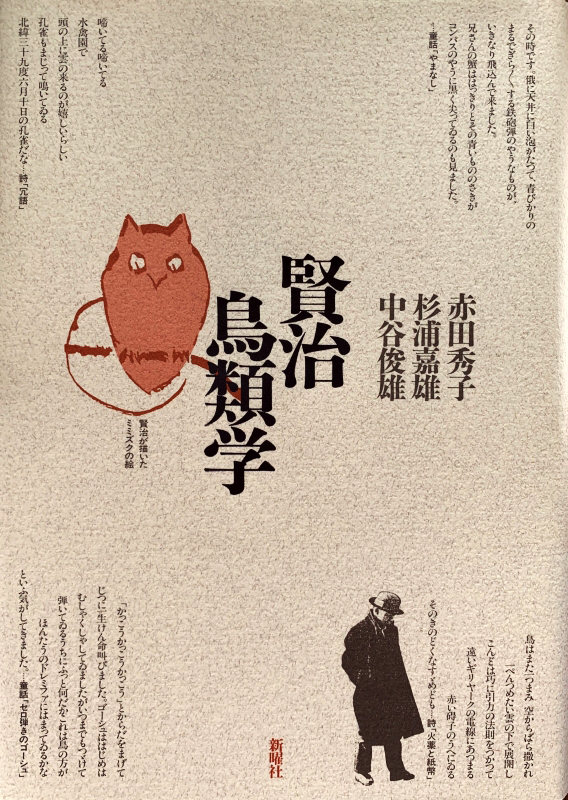 その時です。俄に天井に白い泡がたつて、青びかりの
まるでぎら〱する鉄砲弾のやうなものが、
いきなり飛込んで来ました。
兄さんの蟹ははつきりとその青いもののさきが
コンパスのやうに黒く尖つてゐるのも見ました。
…童話「やまなし」
啼いてる啼いてる
水禽園で
頭の上に雲の来るのが嬉しいらしい
孔雀もまじつて鳴いてゐる
北緯三十九度六月十日の孔雀だな…詩「冗語」
赤田秀子
杉浦嘉雄
中谷俊雄
賢治
鳥類学
賢治が描いた
ミミズクの絵
鳥はまた一つまみ、空からばら撒かれ
一ぺんつめたい雲の下で展開し
こんどは巧に引力の法則をつかつて
遠いギリヤークの電線にあつまる
赤い碍子のうへにゐる
そのきのどくなすゞめども…詩「火薬と紙幣」
「かっこうかっこうかっこう」とからだをまげて
じつに一生けん命叫びました。ゴーシュははじめは
むしゃくしゃしてゐましたがいつまでもつづけて
弾いてゐるうちにふっと何だかこれは鳥の方が
ほんたうのドレミファにはまってゐるかな
といふ気がしてきました。…童話「セロ弾きのゴーシュ」
新曜社